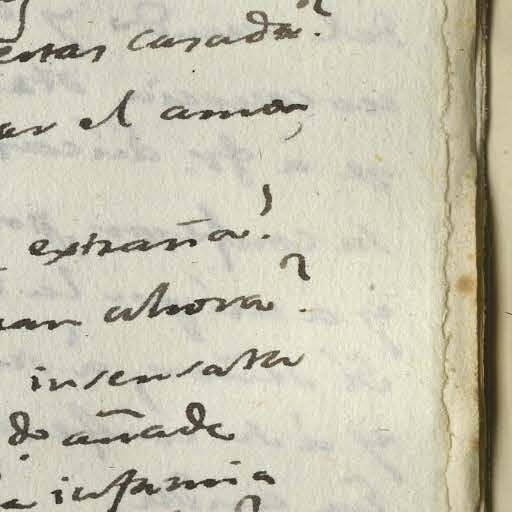 estas casada?
ar el amor,
extraña!
an ahora?
insensata
do añade
la infamia